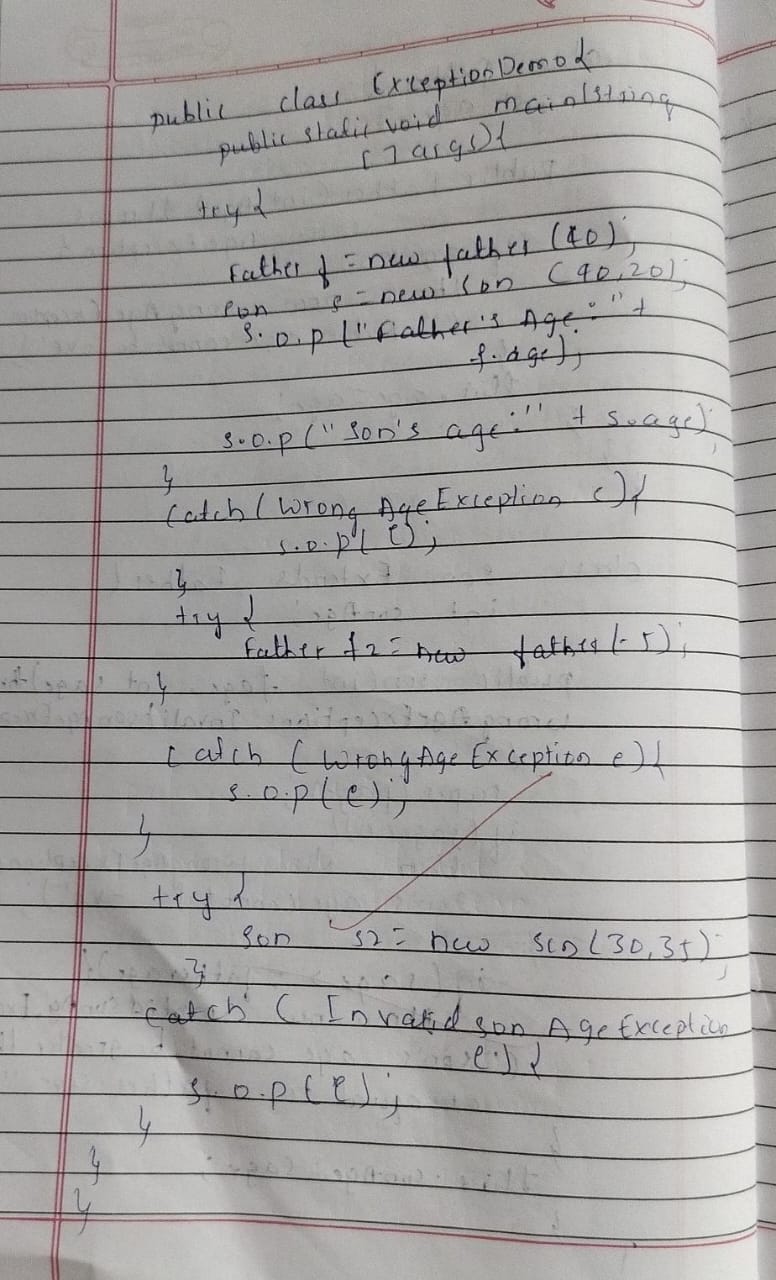 public class ExceptionDemo{
public static void main(String
[] args){
try{
Father f = new father (40);
Son s = new Son (40,20);
S.o.p ("Father's Age:" +
f.age);
S.o.p ("Son's age:" + s.age);
}
Catch (Wrong AgeException e){
S.o.p( e);
}
try {
Father f2 = new father (-5);
}
Catch (WrongAge Exception e){
S.o.p(e);
}
try {
Son s2 = new Son (30,35);
}
Catch (Invalid son Age Exception
e) {
S.o.p(e);
}
}
}